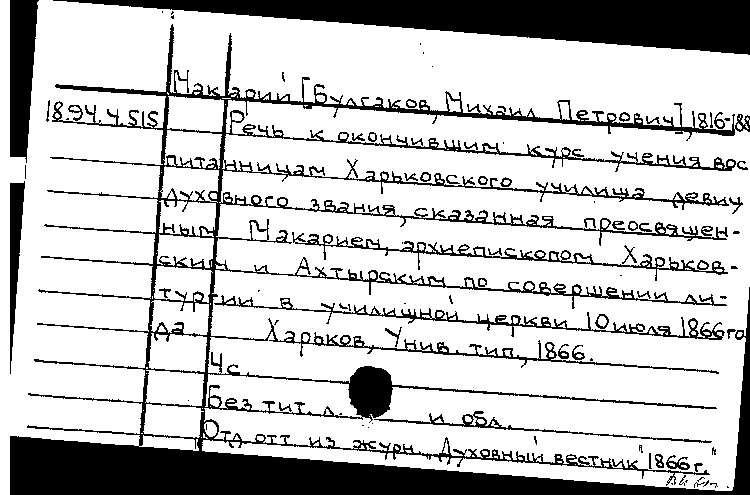 Макарий [Булгаков, Михаил Петрович], 1816-188
18.94.4.515
Речь к окончившим курс учения вос
питанницам Харьковского училища девиц
духовного звания, сказанная преосвящен-
ным Макарием, архиепископом Харьков-
ским и Ахтырским по совершении ли-
тургии в училищной церкви 10 июля 1866 го
да. Харьков, Унив. тип., 1866.
4 с.
Без тит. л. и обл.
Отд. отт. из журн. „Духовный вестник", 1866 г."